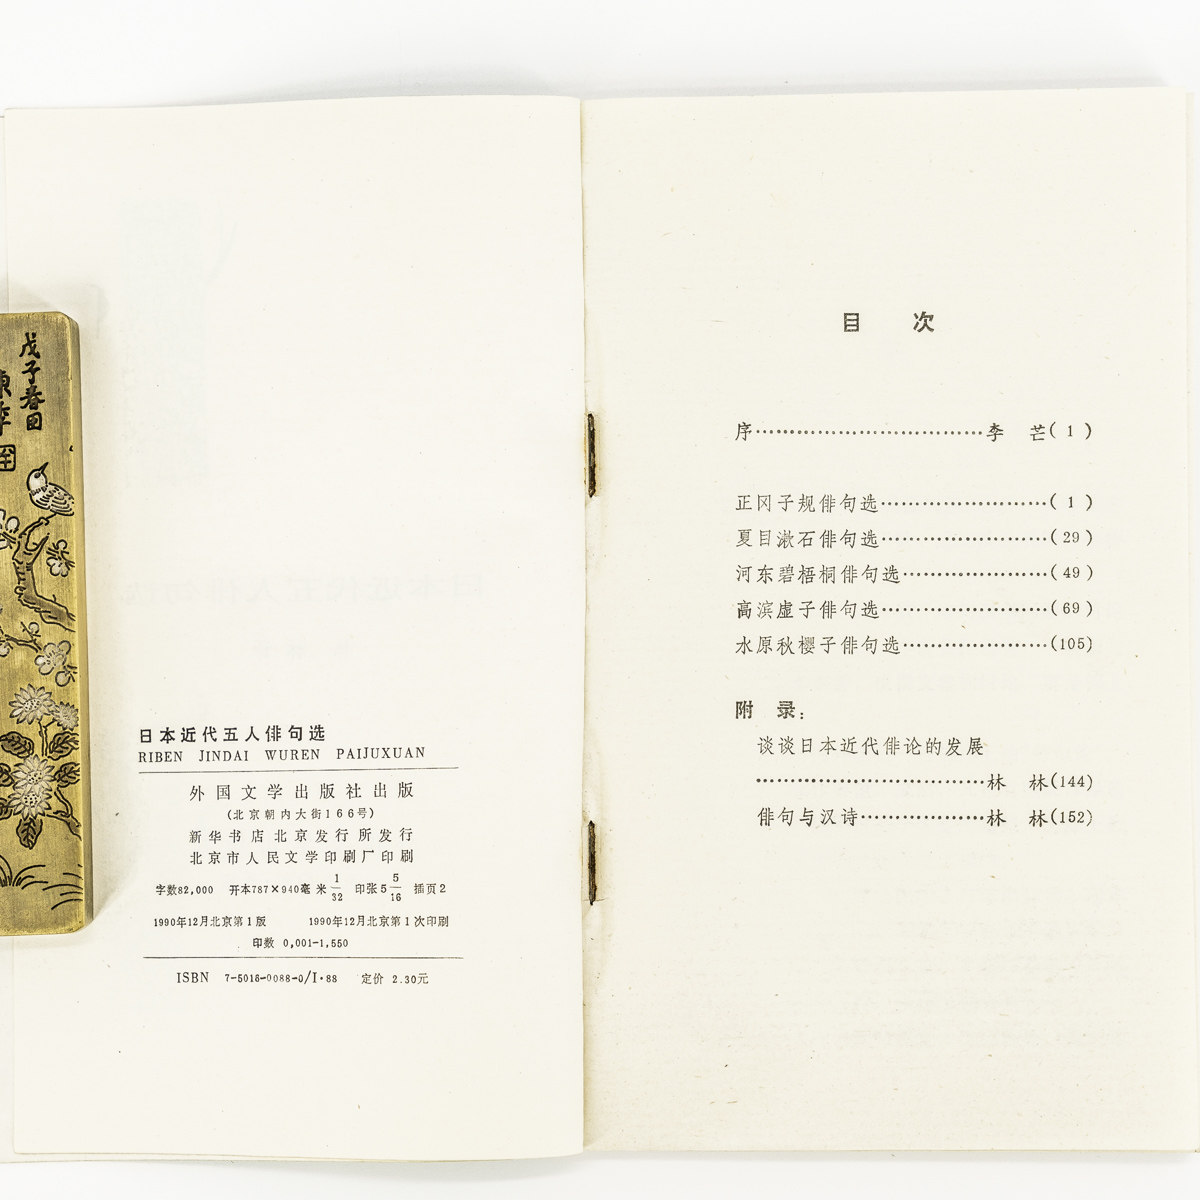 戊子春日
日本近代五人俳句选
RIBEN JINDAI WUREN PAIJUXUAN
外国文学出版社出版
(北京朝内大街166号)
新华书店北京发行所发行
北京市人民文学印刷厂印刷
字数82,000 开本787×940毫米 1/32 印张5 5/16 插页2
1990年12月北京第1版 1990年12月北京第1次印刷
印数 0,001-1,550
ISBN 7-5016-0088-0/I·88 定价 2.30元
目 次
序……………………………李 芒( 1 )
正冈子规俳句选……………………( 1 )
夏目漱石俳句选……………………( 29 )
河东碧梧桐俳句选…………………( 49 )
高滨虚子俳句选……………………( 69 )
水原秋樱子俳句选…………………(105)
附 录：
谈谈日本近代俳论的发展
……………………………林 林(144)
俳句与汉诗………………林 林(152)